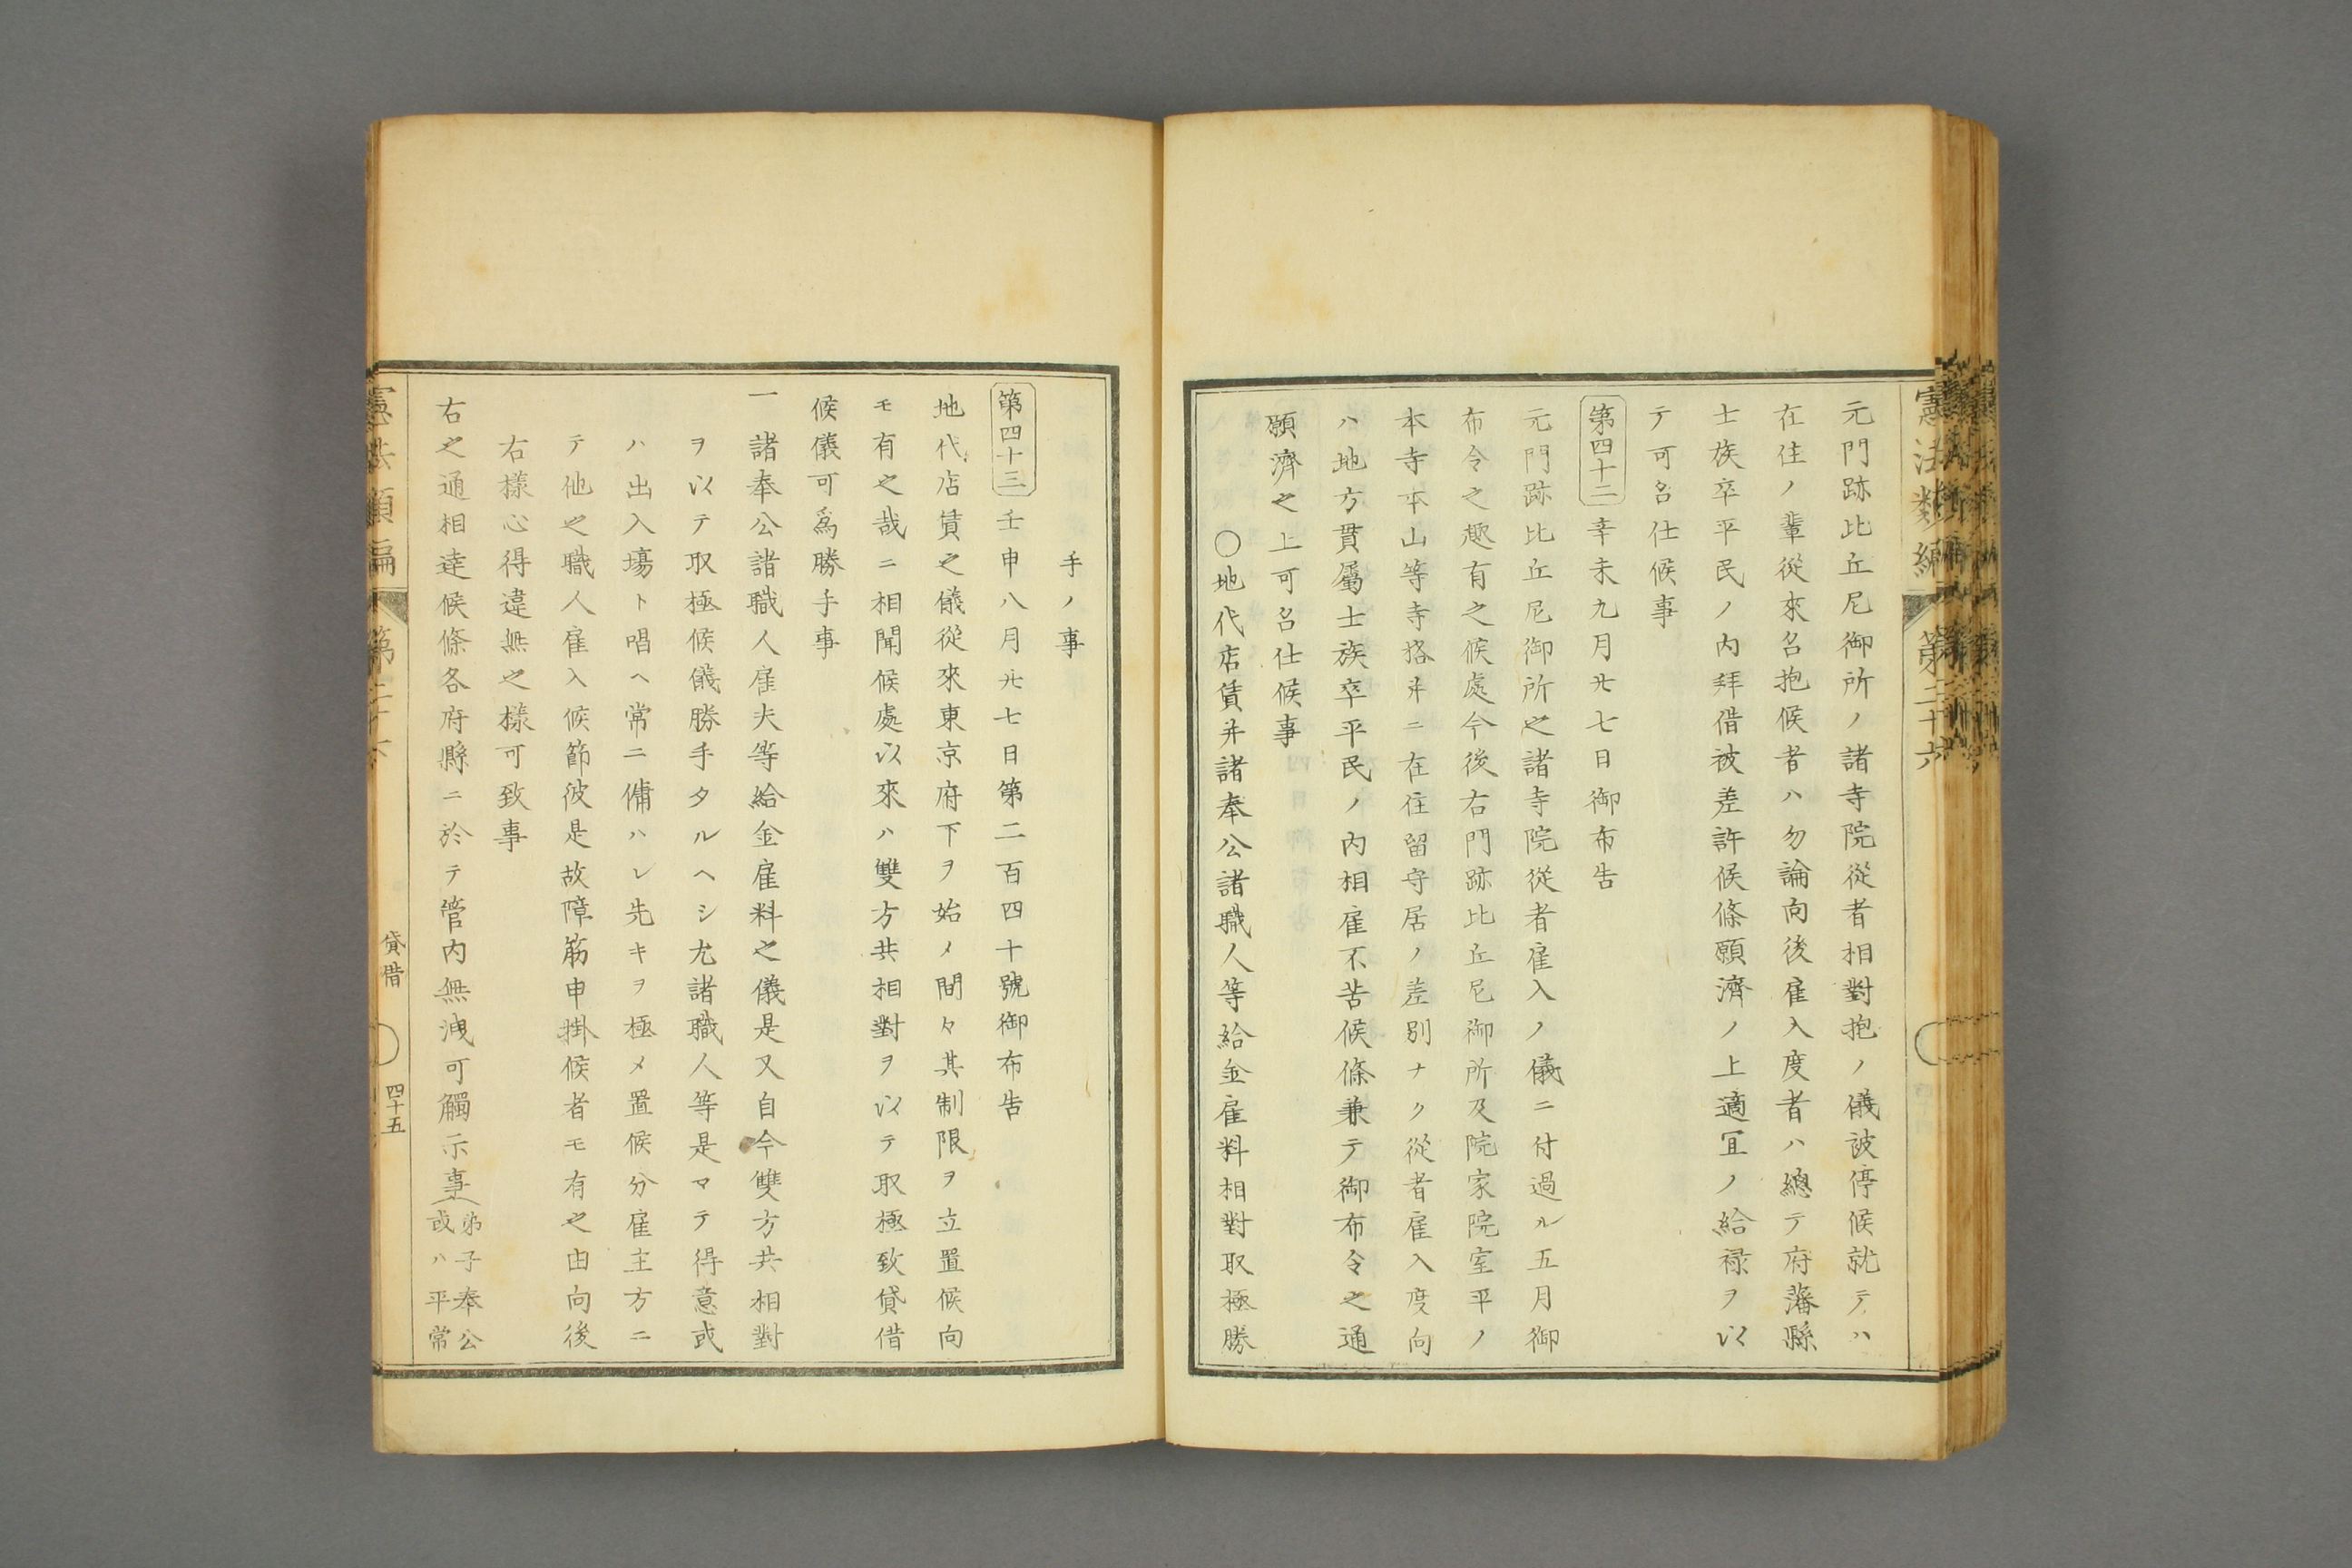 憲法類編 第二十六
元門跡比丘尼御所ノ諸寺院從者相對抱ノ儀被停候就テハ
在住ノ輩從來召抱候者ハ勿論向後雇入度者ハ總テ府藩縣
士族卒平民ノ内拜借被差許候條願濟ノ上適宜ノ給祿ヲ以
テ可召仕候事
第四十二 辛未九月廿七日御布告
元門跡比丘尼御所之諸寺院從者雇入ノ儀ニ付過ル五月御
布令之趣有之候處今後右門跡比丘尼御所及院家院室平ノ
本寺本山等寺格并ニ在住留守居ノ差別ナク從者雇入度向
ハ地方貫屬士族卒平民ノ内相雇不苦候條兼テ御布令之通
願濟之上可召仕候事
〇地代店賃并諸奉公諸職人等給金雇料相對取極勝
手ノ事
第四十三 壬申八月廿七日第二百四十號御布告
地代店賃之儀從來東京府下ヲ始メ間々其制限ヲ立置候向
モ有之哉ニ相聞候處以來ハ雙方共相對ヲ以テ取極致貸借
候儀可爲勝手事
一諸奉公諸職人雇夫等給金雇料之儀是又自今雙方共相對
ヲ以テ取極候儀勝手タルヘシ尤諸職人等是マテ得意或
ハ出入塲ト唱ヘ常ニ傭ハレ先キヲ極メ置候分雇主方ニ
テ他之職人雇入候節彼是故障筋申掛候者モ有之由向後
右樣心得違無之樣可致事
右之通相達候條各府縣ニ於テ管内無洩可觸示事
弟子奉公
或ハ平常
憲法類編 第二十六 貸借 四十五